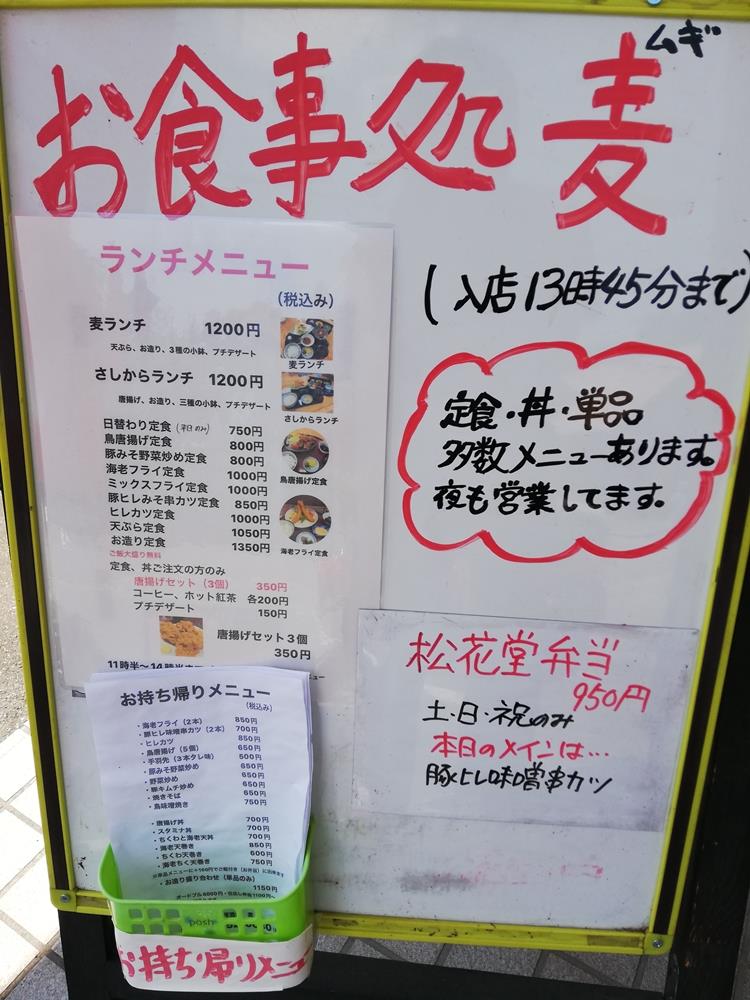 ムギ
お食事処 麦
(入店13時45分まで)
ランチメニュー
(税込み)
麦ランチ 1200円
天ぷら、お造り、3種の小鉢、プチデザート
麦ランチ
さしからランチ 1200円
唐揚げ、お造り、三種の小鉢、プチデザート
さしからランチ
日替わり定食(平日のみ) 750円
鳥唐揚げ定食 800円
豚みそ野菜炒め定食 800円
海老フライ定食 1000円
ミックスフライ定食 1000円
豚ヒレみそ串カツ定食 850円
ヒレカツ定食 1000円
天ぷら定食 1050円
お造り定食 1350円
鳥唐揚げ定食
海老フライ定食
ご飯大盛り無料
定食、丼ご注文の方のみ
唐揚げセット(3個) 350円
コーヒー、ホット紅茶 各200円
プチデザート 150円
唐揚げセット3個
350円
11時半〜14時半
定食・丼・単品
多数メニューあります。
夜も営業してます。
松花堂弁当
950円
土・日・祝のみ
本日のメインは…
豚ヒレ味噌串カツ
お持ち帰りメニュー
(税込み)
・海老フライ(2本) 850円
・豚ヒレ味噌串カツ(2本) 700円
・ヒレカツ 850円
・鳥唐揚げ(5個) 650円
・手羽先(3本タレ味) 500円
・豚みそ野菜炒め 650円
・野菜炒め 650円
・豚キムチ炒め 650円
・焼きそば 650円
・鳥味噌焼き 750円
・唐揚げ丼 700円
・スタミナ丼 700円
・ちくわと海老天丼 700円
・海老天巻き 850円
・ちくわ天巻き 600円
・海老ちく天巻き 750円
・お造り盛り合わせ(単品のみ)
1150円
posh
お持ち帰りメニュー